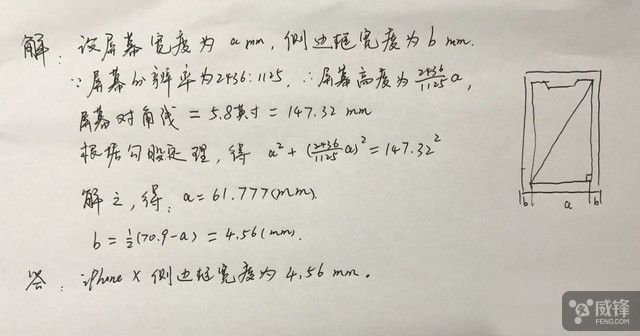 解：设屏幕宽度为 a mm，侧边框宽度为 b mm.
∵屏幕分辨率为2436:1125，∴屏幕高度为 2436/1125 a，
屏幕对角线 = 5.8英寸 = 147.32 mm
根据勾股定理，得 a² + (2436/1125 a)² = 147.32²
解之，得：a = 61.777(mm).
b = ½(70.9-a) = 4.56(mm).
答：iPhone X 侧边框宽度为 4.56 mm。
b a b
威锋
FENG.COM